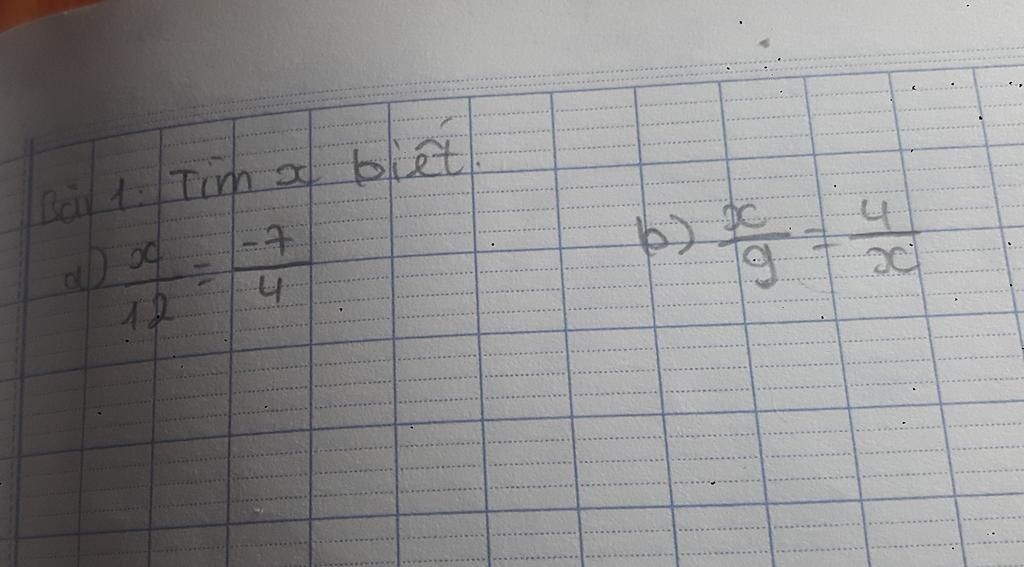 Bài 1: Tìm x biết.
a) x/12 = -7/4 b) x/9 = 4/x